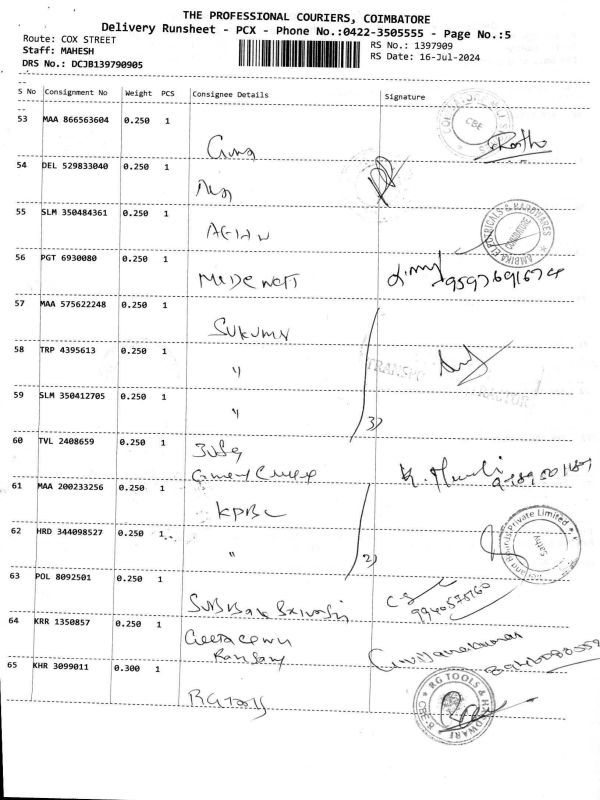 THE PROFESSIONAL COURIERS, COIMBATORE
Delivery Runsheet - PCX - Phone No.:0422-3505555 - Page No.:5
Route: COX STREET
Staff: MAHESH
DRS No.: DCJB139790905
RS No.: 1397909
RS Date: 16-Jul-2024
S No Consignment No Weight PCS Consignee Details Signature
53 MAA 866563604 0.250 1
CBE
54 DEL 529833040 0.250 1
55 SLM 350484361 0.250 1
AMBIKA ELECTRICALS & HARDWARES
COIMBATORE
56 PGT 6930080 0.250 1
9597691674
57 MAA 575622248 0.250 1
SUKUMN
58 TRP 4395613 0.250 1
"
59 SLM 350412705 0.250 1
"
3)
60 TVL 2408659 0.250 1
61 MAA 200233256 0.250 1
KPBC
62 HRD 344098527 0.250 1
"
2)
Private Limited
63 POL 8092501 0.250 1
9940578760
64 KRR 1350857 0.250 1
65 KHR 3099011 0.300 1
RG Tools
RG TOOLS & HARDWARE
CBE